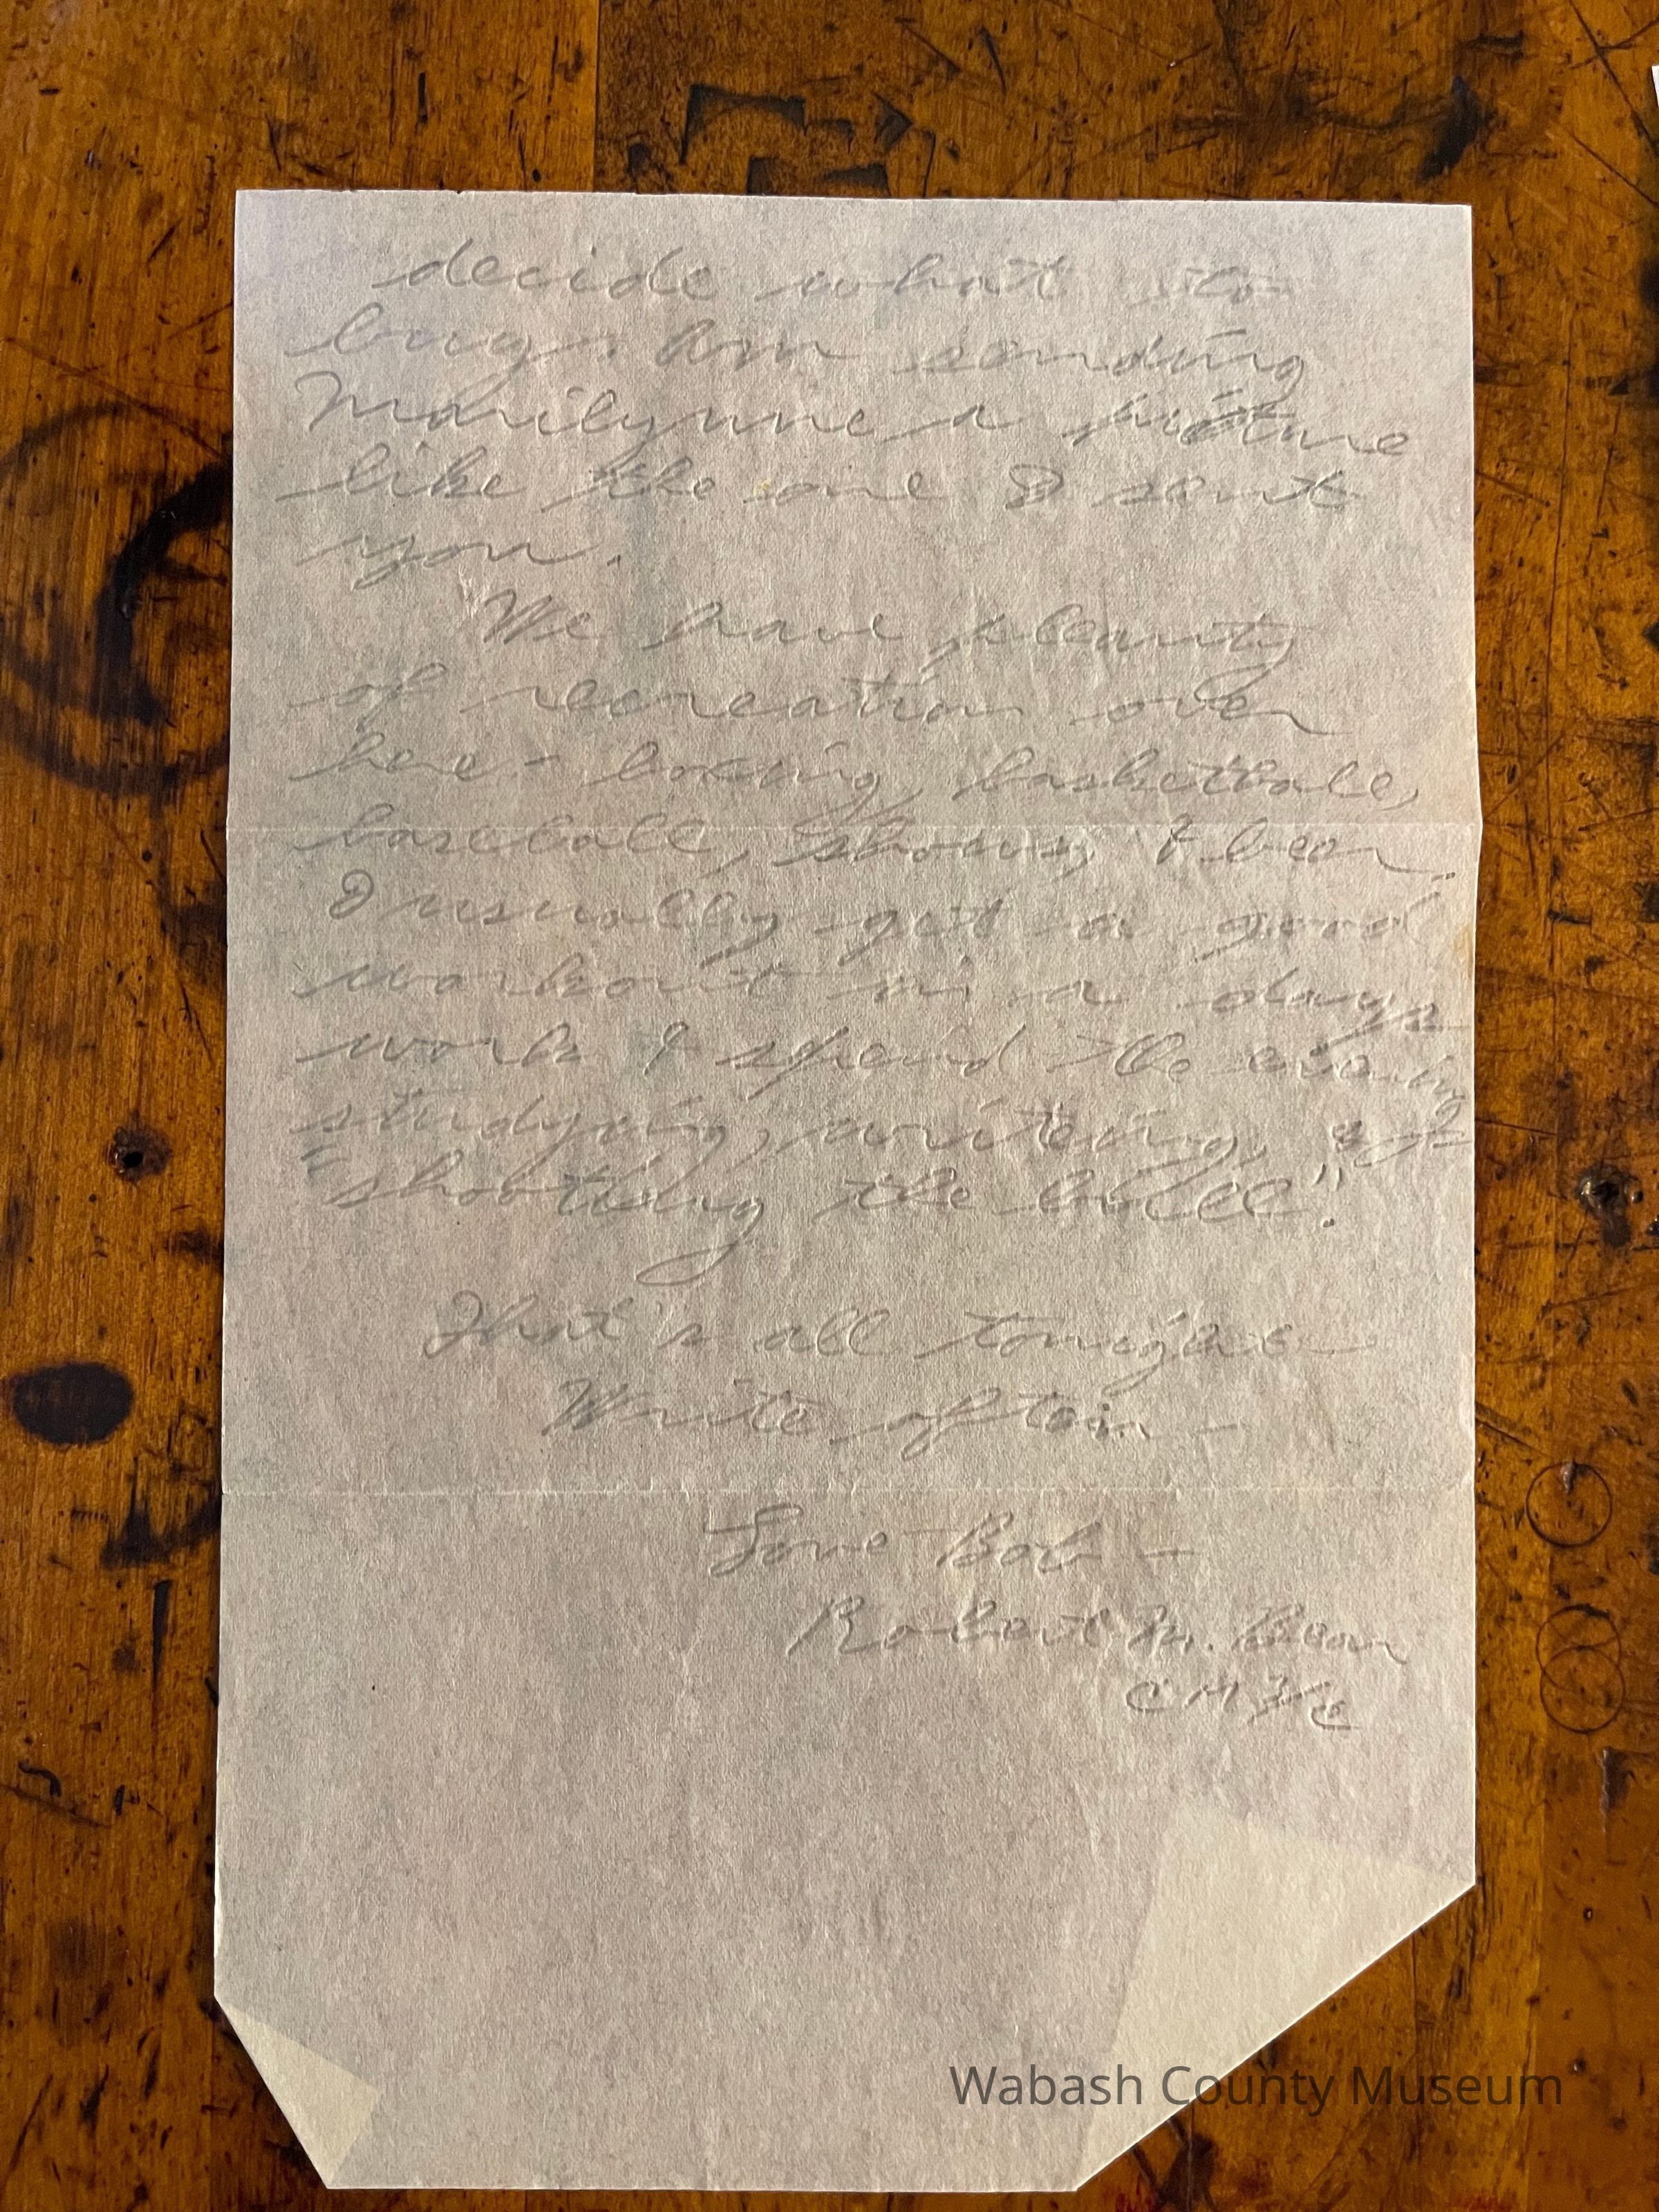 decide what to
buy. Am sending
Marilynne a picture
like the one I sent
you.
We have pleanty
of recreation over
here - boxing, basketball,
baseball, shows, & beer.
I usually get a good
workout in a days
work & spend the evening
studying, writing, or
"shootting the bull".
That's all tonight
Write often -
Love Bob -
Robert M. Bear
CM 3/c
Wabash County Museum